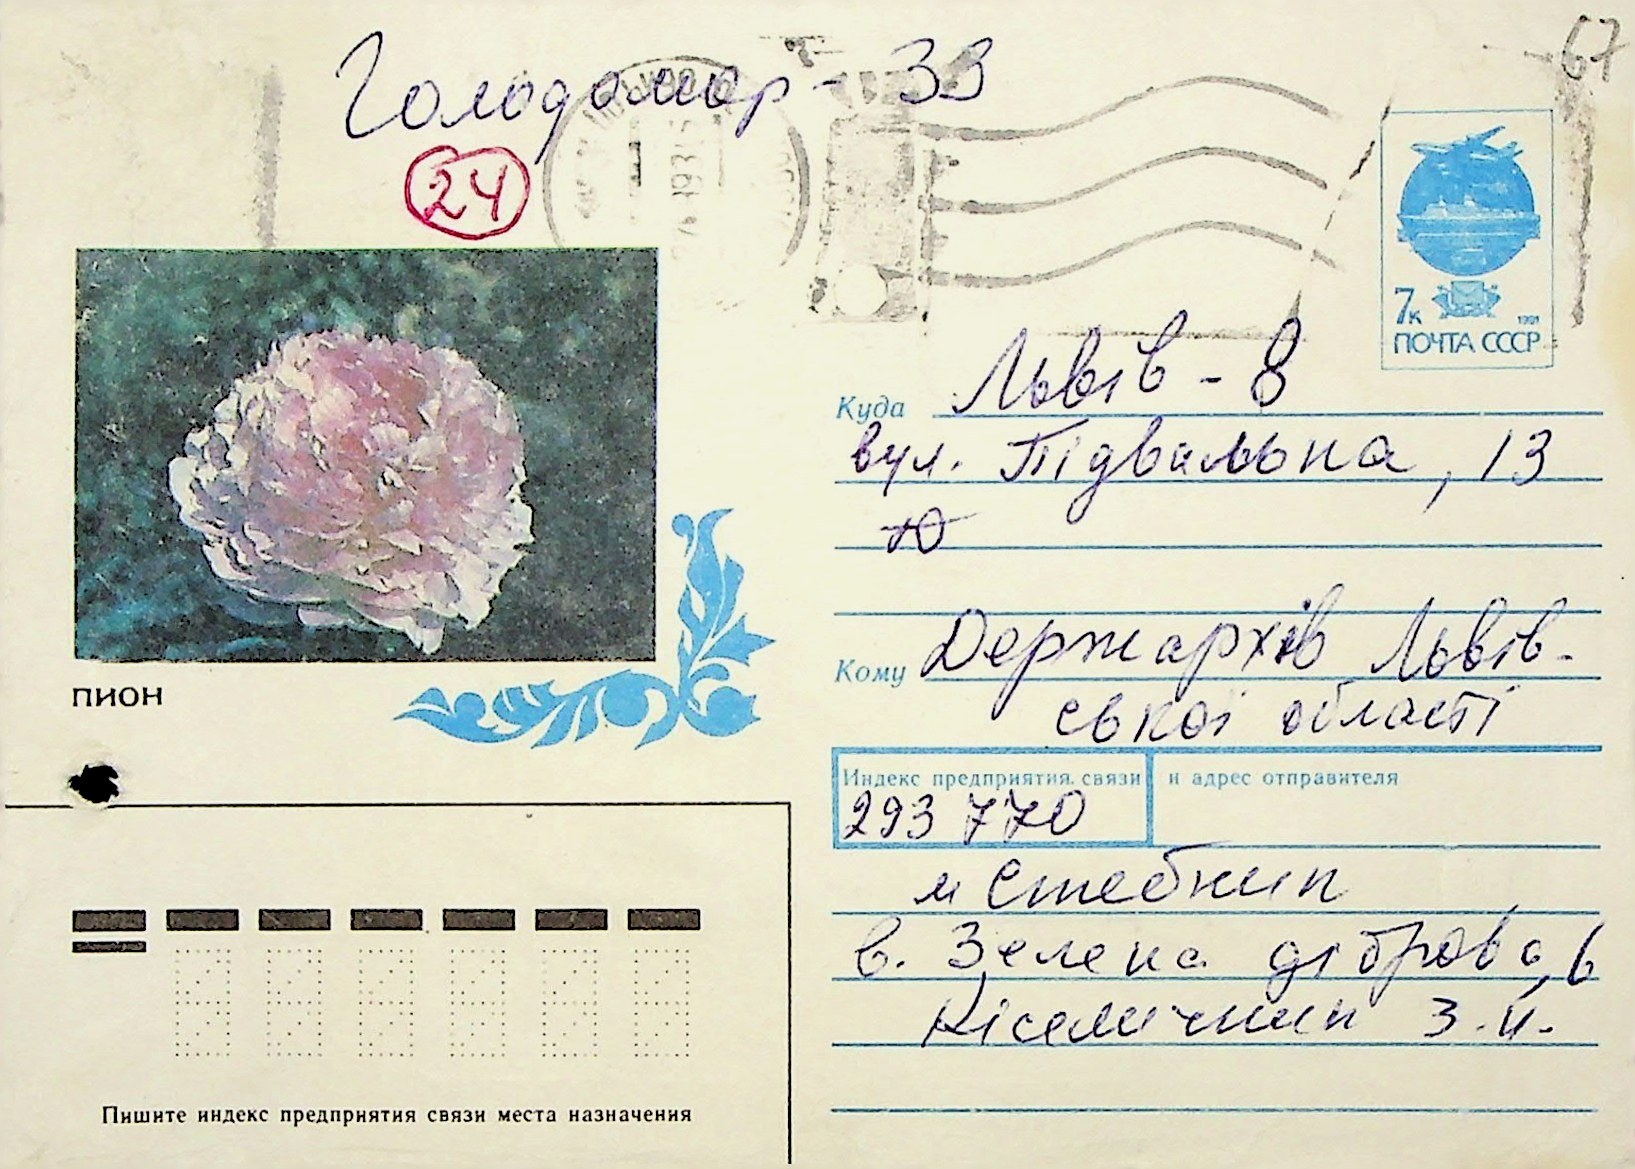 67
Голодомор - 33
24
7к
1991
ПОЧТА СССР
Куда Львів - 8
вул. Підвальна, 13
Ю
Кому Держархів Львів-
ської області
ПИОН
Индекс предприятия связи и адрес отправителя
293770
м Стебник
в. Зелена діброва, 6
З. Й.
Пишите индекс предприятия связи места назначения